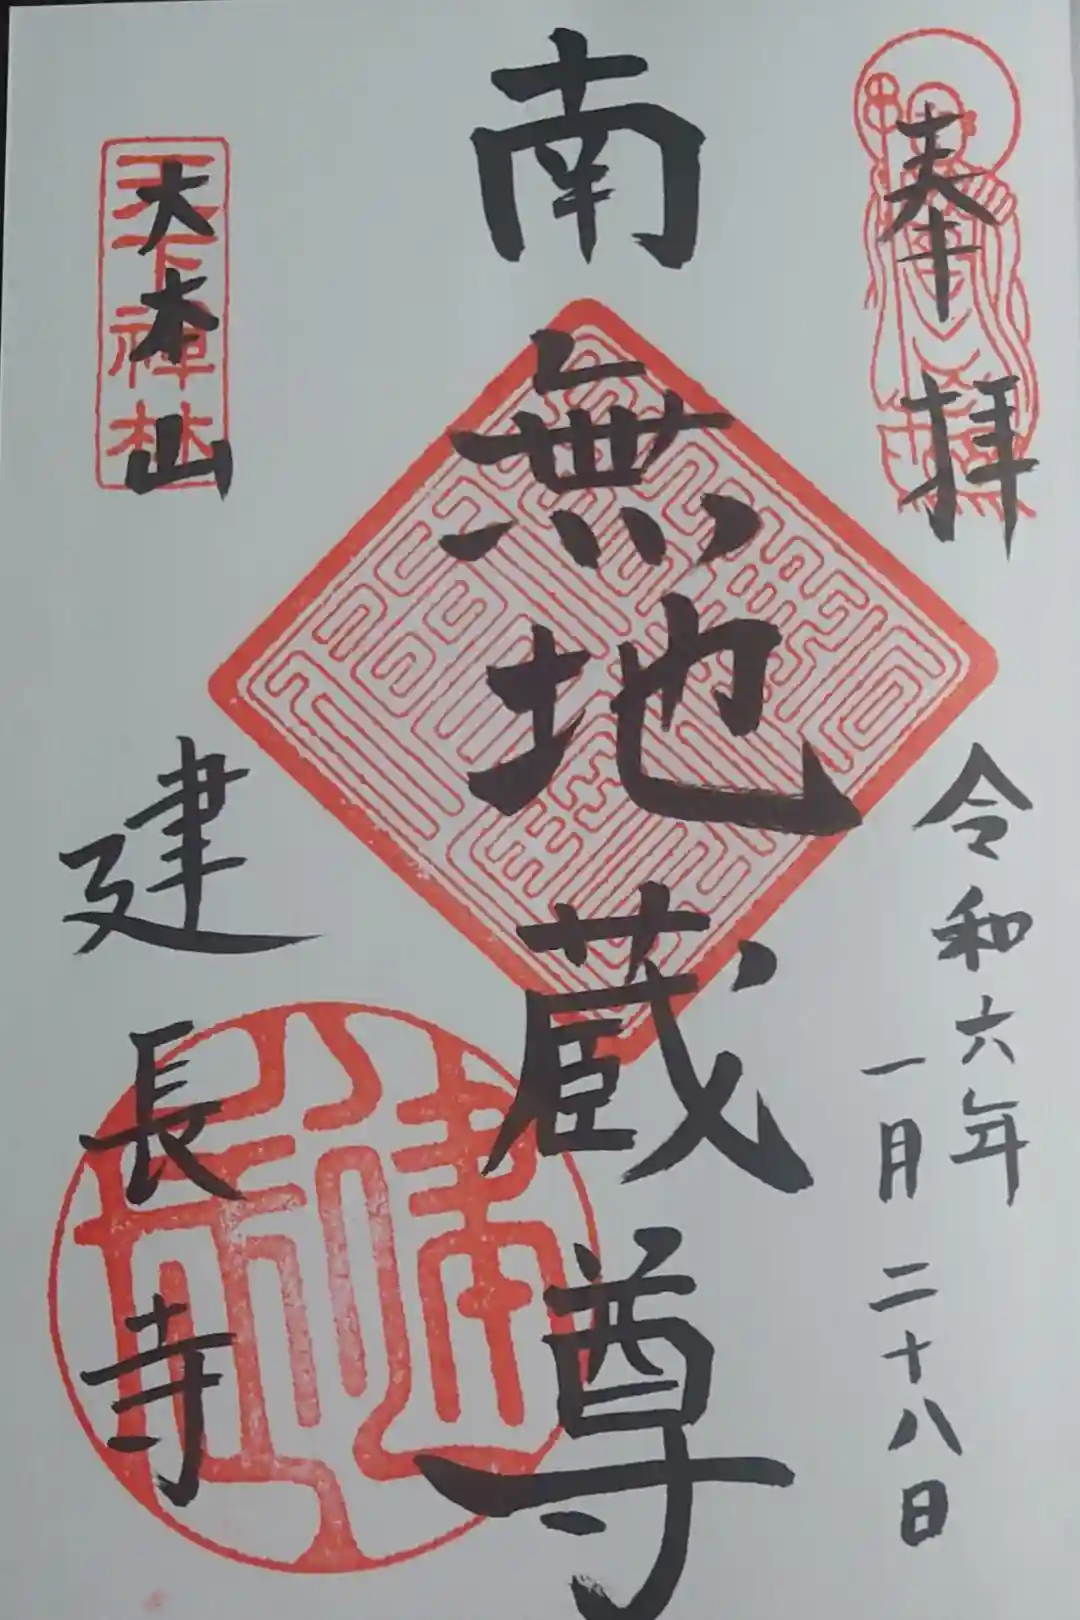 奉拝
令和六年
一月二十八日
南無地蔵尊
天下禅林
大本山
建長寺